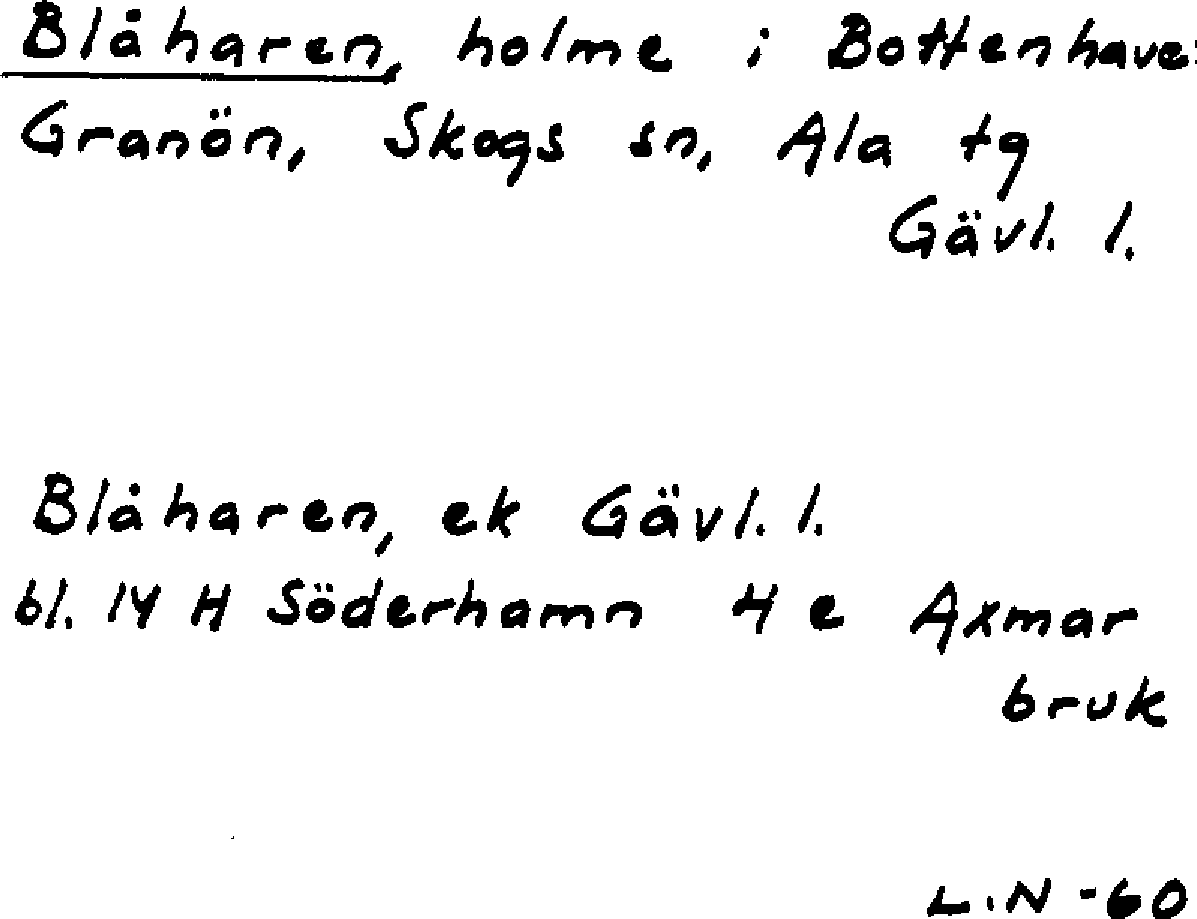 Blåharen, holme i Bottenhave
Granön, Skogs sn, Ala tg
Gävl. l.
Blåharen, ek Gävl. l.
bl. 14 H Söderhamn 4 e Axmar
bruk
L.N -60